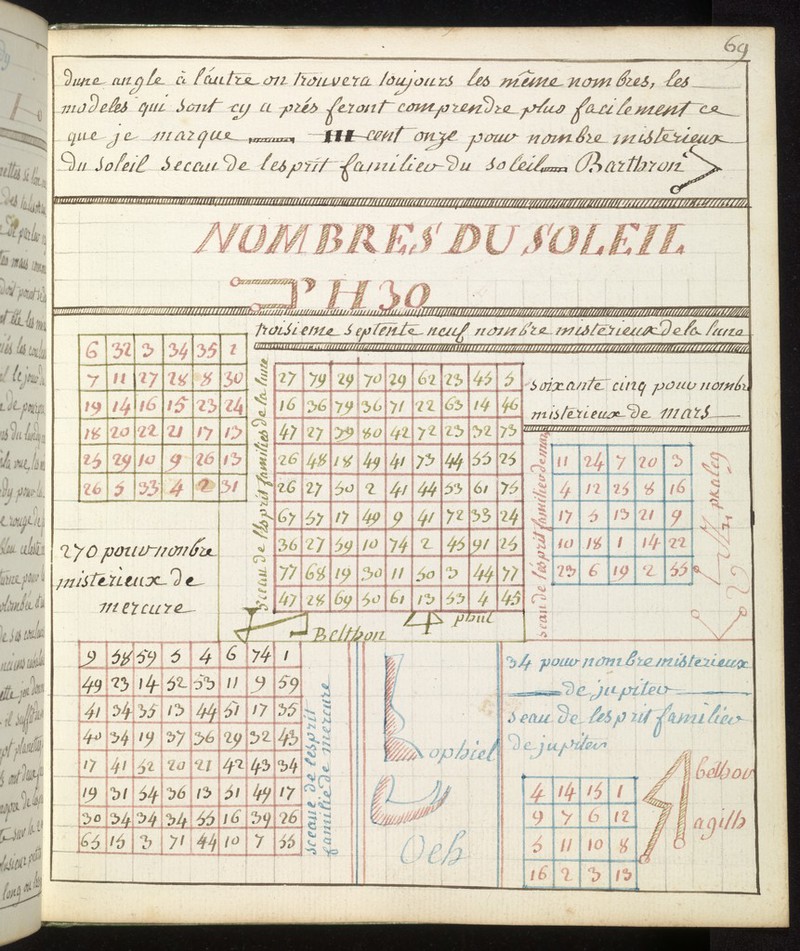 69
dune angle à l'autre on trouvera toujours les même nombres, les
modeles qui sont cy a prés feront comprendre plus facilement ce
que je marque III cent onze pour nombre misterieux
du soleil seceau de lesprit familier du soleil Barthron
NOMBRES DU SOLEIL
H 30
troisieme septente neuf nombre misterieux de la lune
6 32 3 34 35 1
7 11 27 28 8 30
19 14 16 15 23 24
18 20 22 21 17 13
25 29 10 9 26 13
26 5 33 4 2 31
sceau de lesprit familier de la lune
27 79 29 70 29 62 23 45 5
16 36 79 36 71 22 63 14 46
47 27 39 80 42 72 23 32 73
26 48 18 49 41 73 44 55 25
26 27 50 2 41 44 53 61 75
67 57 17 49 9 41 72 33 24
36 27 59 10 74 2 45 91 25
77 68 19 30 11 50 3 44 77
47 28 69 50 61 13 53 4 45
Belthon
phul
soixante cinq pour nombre
misterieux de mars
seau de lesprit familier de mars
11 24 7 20 3
4 12 25 8 16
17 5 13 21 9
10 18 1 14 22
23 6 19 2 55
phaleg
270 pour nonbre
misterieux de
mercure
9 58 59 5 4 6 74 1
49 23 14 52 53 11 9 59
41 34 35 13 44 51 17 35
40 34 19 37 36 29 32 43
17 41 52 20 21 42 43 34
19 31 54 36 13 51 49 17
30 34 34 34 55 16 39 26
65 15 3 71 44 10 7 55
sceaue de lesprit
familie de mercure
ophiel
Oeh
34 pour nombre misterieux
de jupiter
seau de lesprit familier
de jupiter
4 14 15 1
9 7 6 12
5 11 10 8
16 2 3 13
belhor
agith